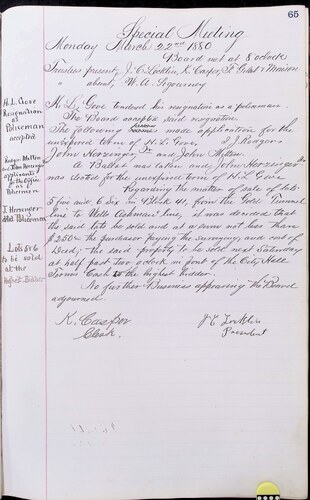 65
Special Meeting
Monday March 22nd 1880
Board met at 8 o'clock
Trustees present, J. C. Locklin, K. Casper, P. Gilst & Monson
" absent, W. A. Sigourney
H. L. Gove tendered his resignation as policeman.
The Board accepted said resignation.
The following persons made application for the
unexpired term of H. L. Gove. J. J. Reager
John Herzinger, Jr and John Mitten.
A Ballot was taken and John Herzinger Jr
was elected for the unexpired term of H. L. Gove
Regarding the matter of sale of lots
5 five and 6 six in Block 41, from the Gore
line to Wells line, it was decided that
the said lots be sold and at a sum not less than
$250 the purchaser paying the Survey, and cost of
Deed; the said property to be sold next Saturday
at half past two o'clock in front of the City Hall
Terms Cash to the highest bidder.
No further Business appearing the Board
adjourned.
K. Casper
Clerk.
J C Locklin
President
H. L. Gove
Resignation
as
Policeman
accepted
applicants
for the Office
of
Policeman
J Herzinger
elected Policeman
Lots 5 & 6
to be sold
at the
Highest Bidder